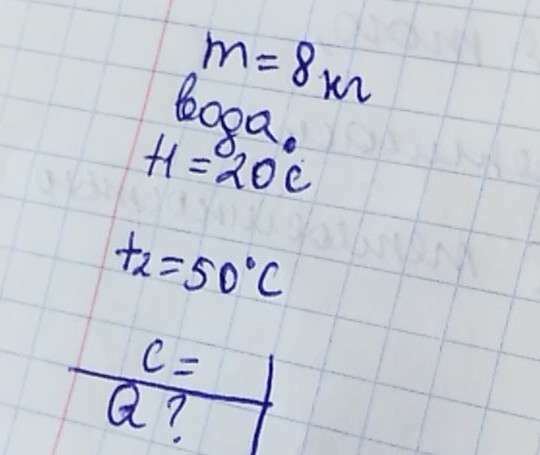 m = 8 кг
вода
t1 = 20°C
t2 = 50°C
c =
Q ?